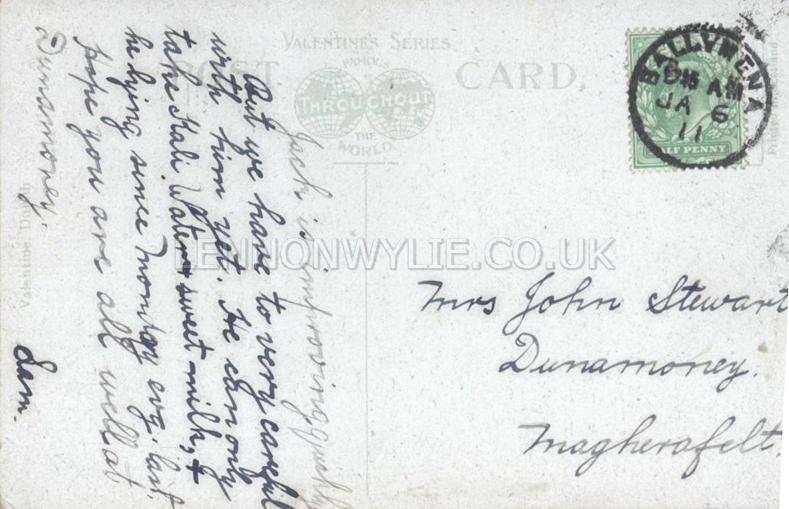 VALENTINE'S SERIES
FAMOUS
THROUGHOUT
THE
WORLD
POST CARD.
BALLYMENA
8 15 AM
JA 6
11
HALF PENNY
Jack is improving quickly
But we have to very careful
with him yet. He can only
take Kali Water & sweet milk, &
he lying since monday evg. last.
hope you are all well at
Dunamoney.
Sam.
Mrs John Stewart
Dunamoney.
Magherafelt.
Valentine, Dublin
LENNONWYLIE.CO.UK